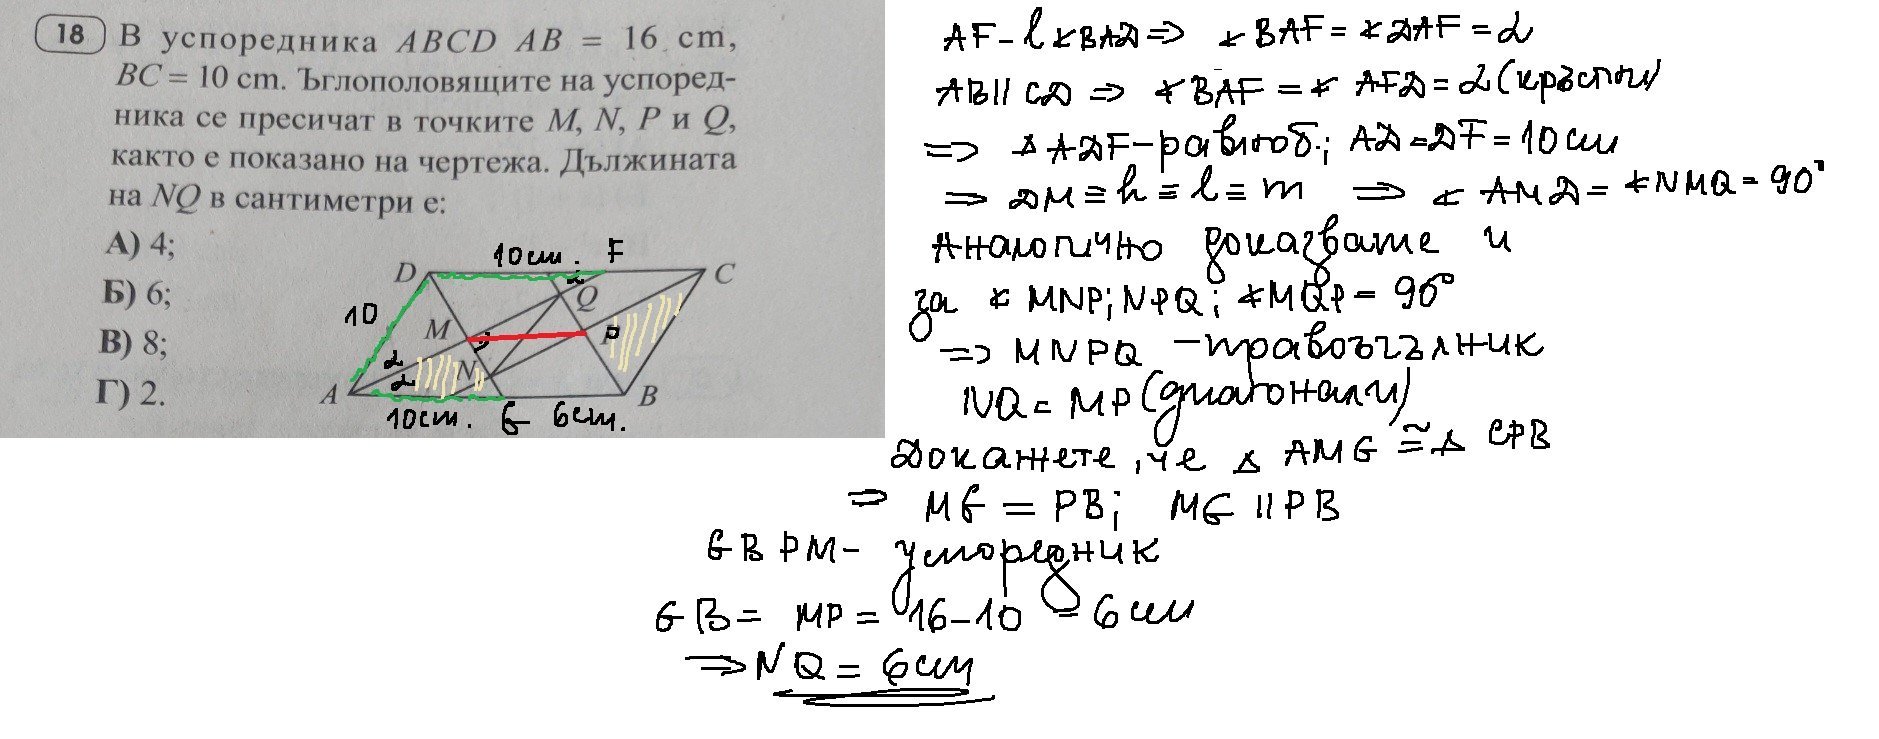 18 В успоредника ABCD AB = 16 cm,
BC = 10 cm. Ъглополовящите на успоред-
ника се пресичат в точките M, N, P и Q,
както е показано на чертежа. Дължината
на NQ в сантиметри е:
А) 4;
Б) 6;
В) 8;
Г) 2.
10cm. F
D Q C
α
10
M P
α
α N
A B
10cm. G 6cm.
AF - l ∢BAD => ∢BAF = ∢DAF = α
AB || CD => ∢BAF = ∢ AFD = α (кръстни)
=> △ADF - равноб.; AD = DF = 10cm
=> DM ≡ h ≡ l ≡ m => ∢ AMD = ∢NMQ = 90°
Аналогично доказваме и
за ∢ MNP; NPQ; ∢MQP = 90°
=> MNPQ - правоъгълник
NQ = MP (диагонали)
Докажете, че △ AMG ≅ △ CPB
=> MG = PB; MG || PB
GBPM - успоредник
GB = MP = 16-10 = 6cm
=> NQ = 6cm